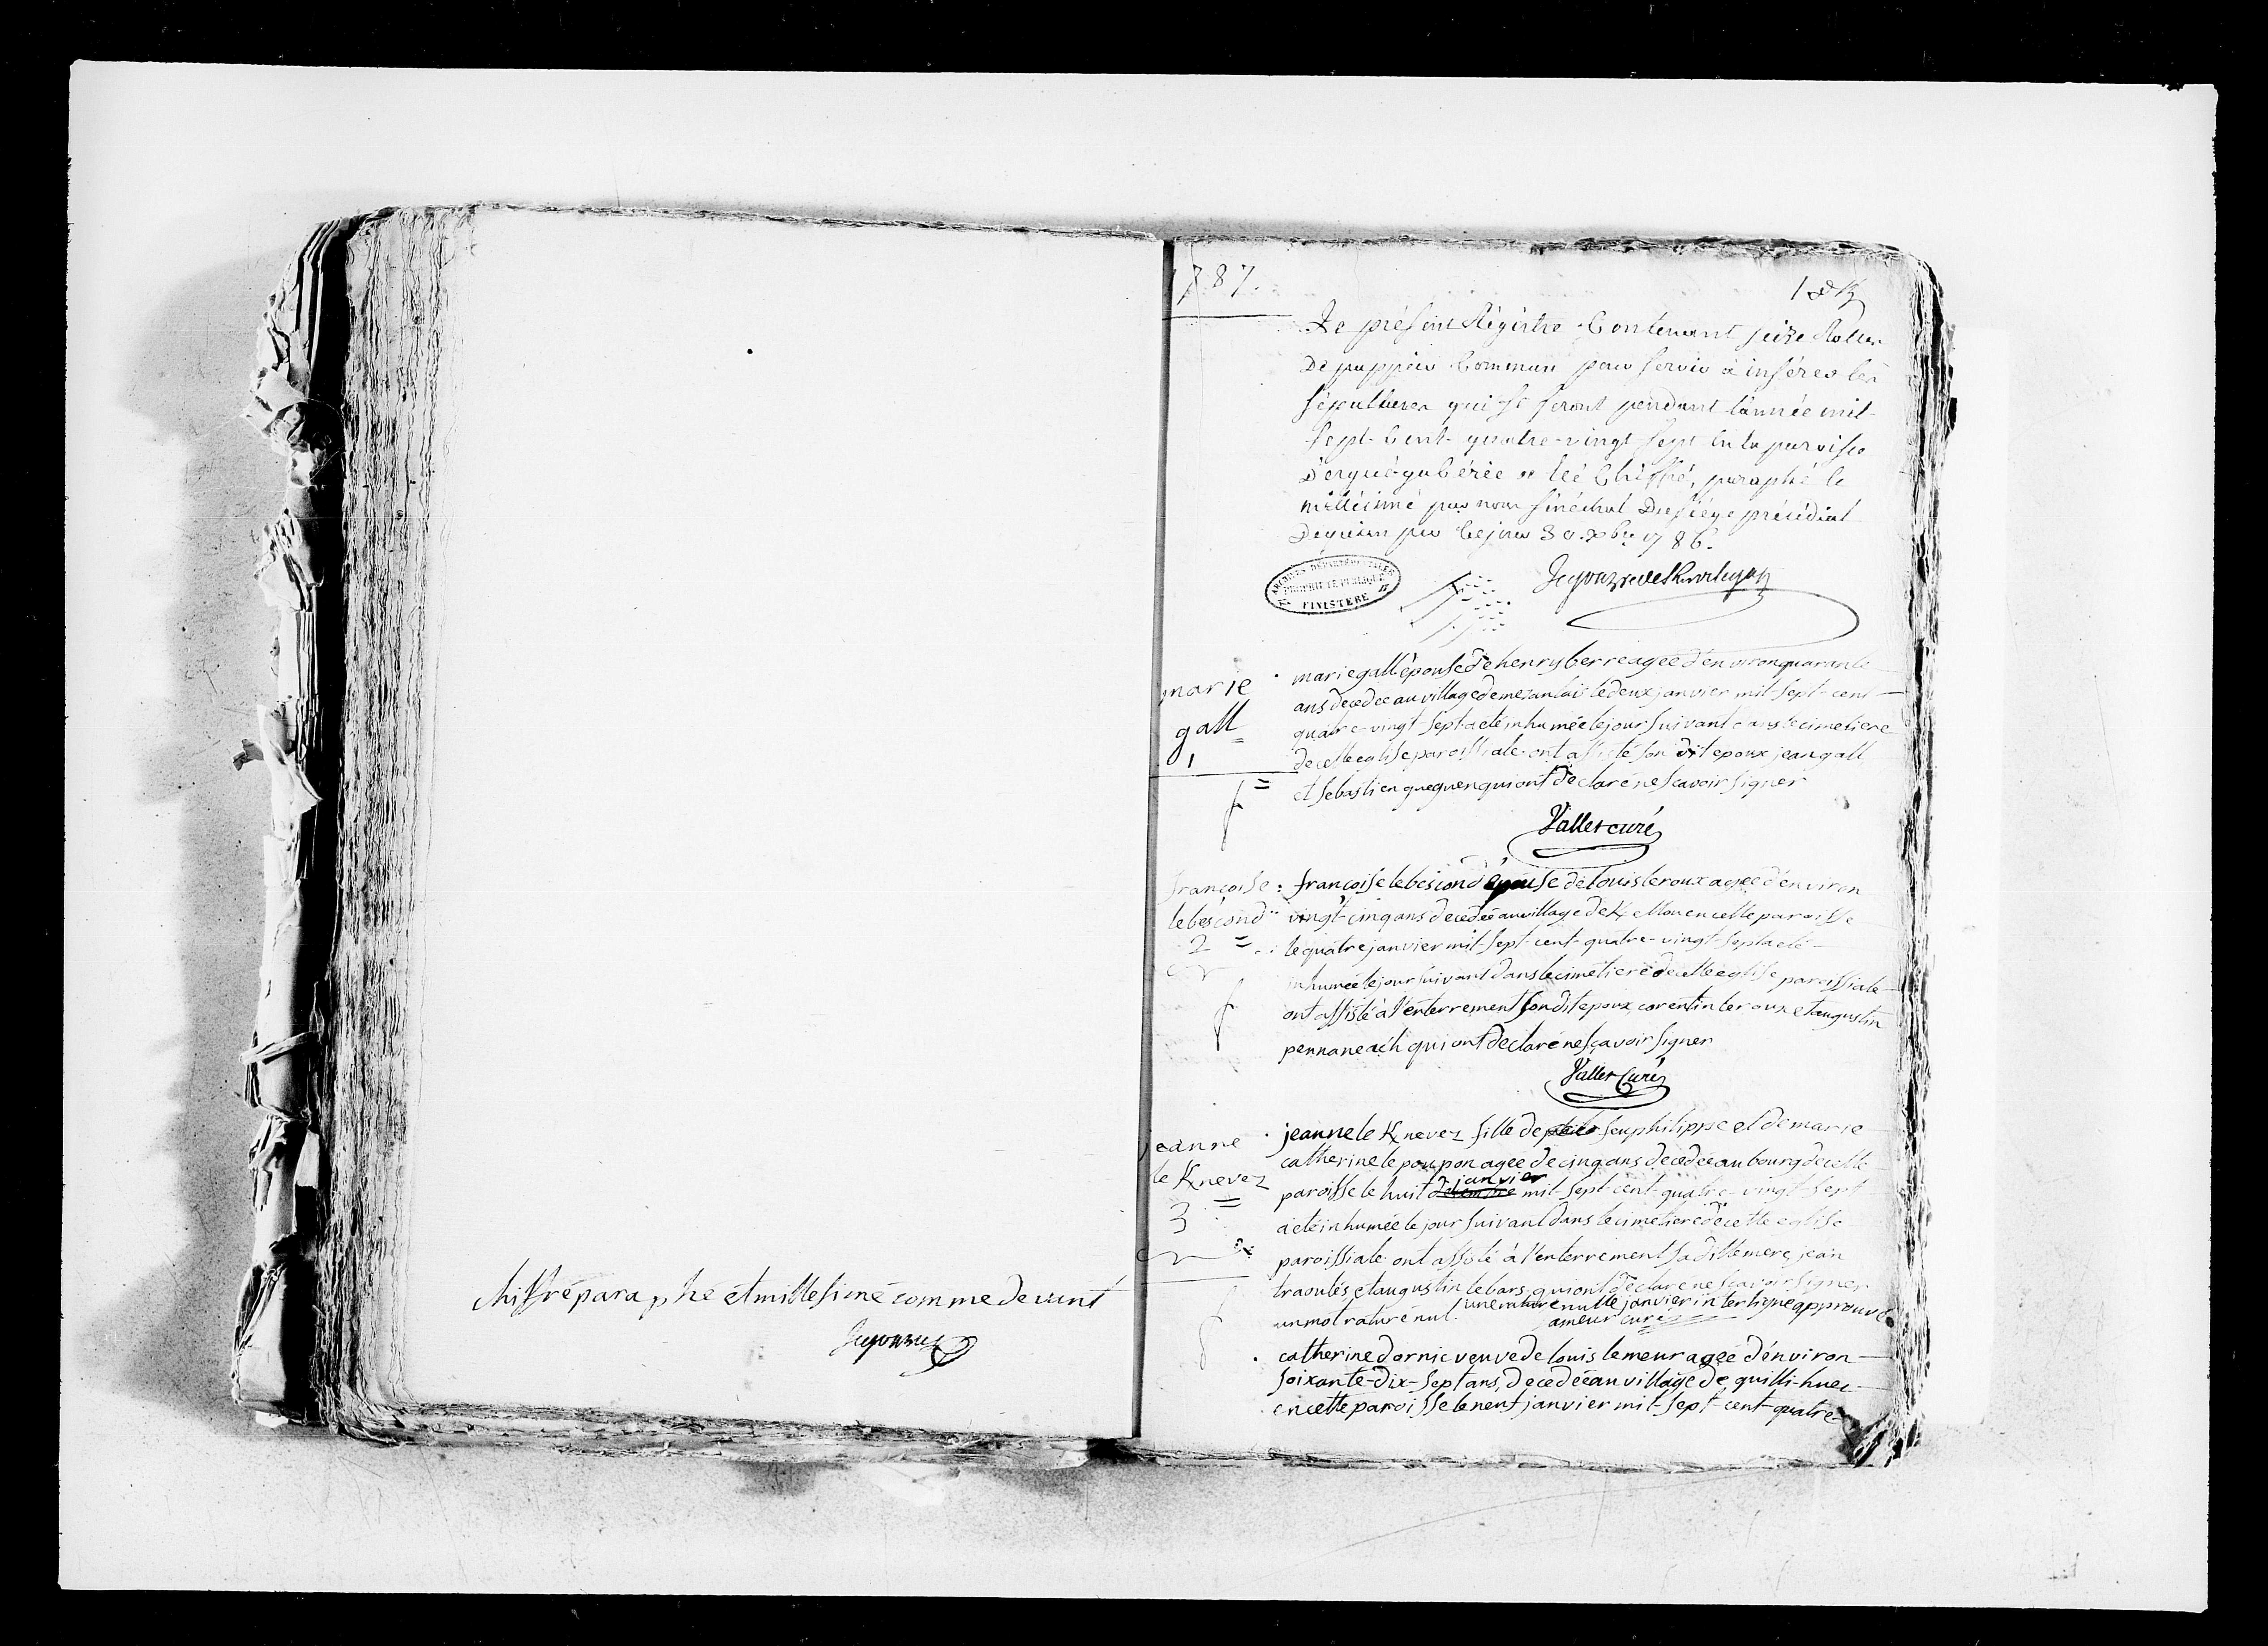 chiffré paraphé et millesimé comme devant
1787.
Le présent Régistre Contenant seize Rolles
De pappier Commun pour servir à insérer les
sépultures qui se feront pendant l'année mil
sept-Cent-quatre-vingt sept en la paroisse
D'ergué-gabéric a été Chiffré, paraphé le
millésimé par nous sénéchal Du siége présidial
De quimper Ce jour 30. xbre 1786.
ARCHIVES DÉPARTEMENTALES
PROPRIÉTÉ PUBLIQUE
FINISTERE
marie
gall
1
marie gall épouse de henry berre agée d'environ quarante
ans decedee au village de mezanlais le deux janvier mil-sept-cent
quatre-vingt-sept a eté inhumée le jour suivant dans le cimetiere
de cette eglise paroissiale. ont assisté son dit epoux jean gall
et sebastien gueguen qui ont declaré ne sçavoir signer
Vallet curé
françoise
le bescond
2
françoise le bescond épouse de louis le roux agée d'environ
vingt-cinq ans decedeé au village de en cette paroisse
le quatre janvier mil-sept-cent-quatre-vingt-sept a eté
inhumée le jour suivant dans le cimetiere de cette eglise paroissiale
ont assisté à l'enterrement son dit epoux, corentin le roux et augustin
pennaneach qui ont declaré ne sçavoir signer
Vallet Curé
jeanne
le Knevez
3
jeanne le Knevez fille de feu philippe et de marie
catherine le poupon agée de cinq ans decedée au bourg de cette
janvier
paroisse le huit decembre mil-sept-cent-quatre-vingt-sept
a eté inhumée le jour suivant dans le cimetiere de cette eglise
paroissiale. ont assisté à l'enterrement sa ditte mere, jean
traoulés, et augustin le bars, qui ont declaré ne sçavoir signer
un mot raturé nul. une rature nulle janvier interligne approuvé
ameur curé
catherine dornic veuve de louis le meur agée d'environ
soixante-dix-sept ans, decedée au village de quilli-huec
en cette paroisse le neuf janvier mil-sept-cent-quatre-